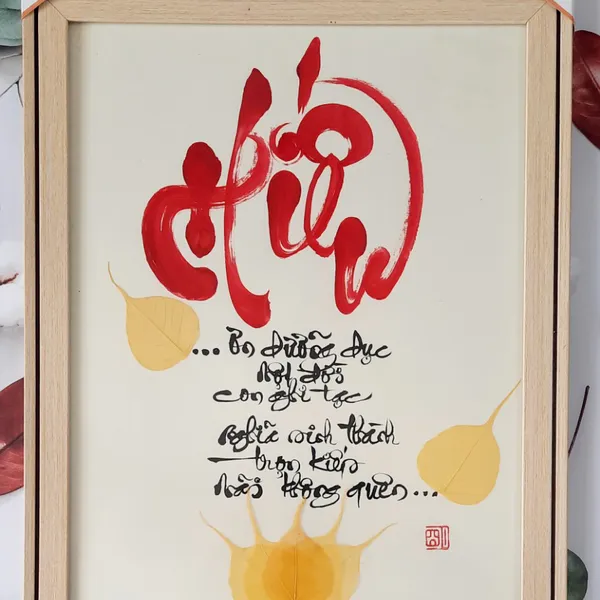 Hiếu
... Ơn dưỡng dục
một đời
con ghi tạc
nghĩa sinh thành
trọn kiếp
mãi không quên...